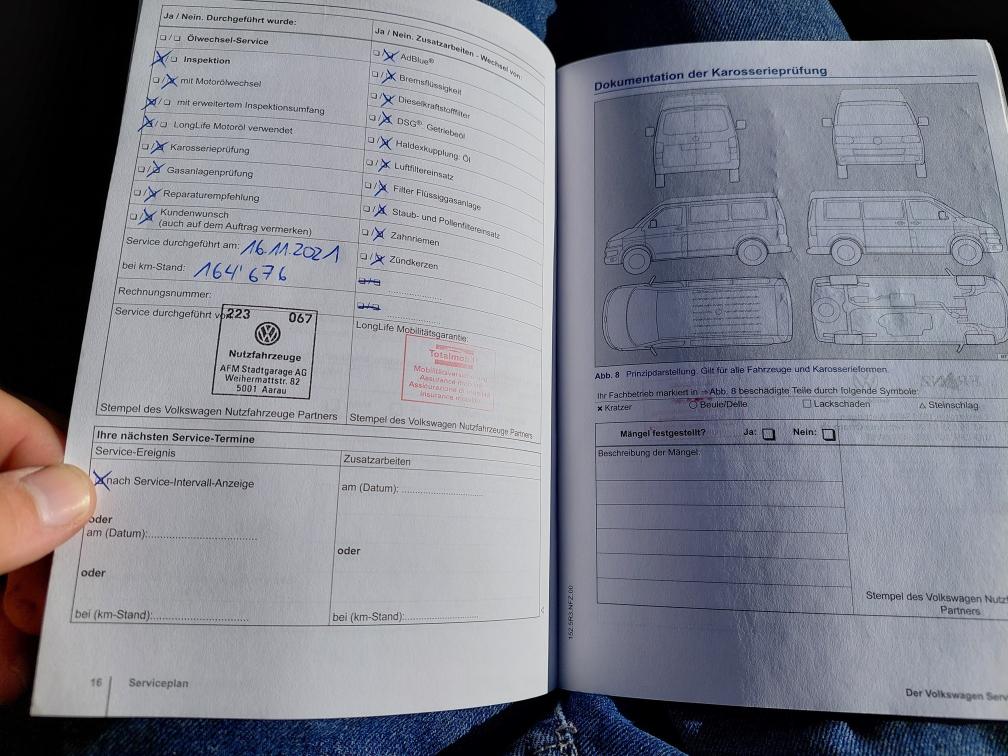 Ja / Nein. Durchgeführt wurde:
❏/❏ Ölwechsel-Service
❏/❏ Inspektion
❏/❏ mit Motorölwechsel
❏/❏ mit erweitertem Inspektionsumfang
❏/❏ LongLife Motoröl verwendet
❏/❏ Karosserieprüfung
❏/❏ Gasanlagenprüfung
❏/❏ Reparaturempfehlung
❏/❏ Kundenwunsch
(auch auf dem Auftrag vermerken)
Service durchgeführt am: 16.11.2021
bei km-Stand: 164'676
Rechnungsnummer:
Service durchgeführt von:
223 067
Nutzfahrzeuge
AFM Stadtgarage AG
Weihermattstr. 82
5001 Aarau
Stempel des Volkswagen Nutzfahrzeuge Partners
Ja / Nein. Zusatzarbeiten - Wechsel von:
❏/❏ AdBlue®
❏/❏ Bremsflüssigkeit
❏/❏ Dieselkraftstofffilter
❏/❏ DSG®: Getriebeöl
❏/❏ Haldexkupplung: Öl
❏/❏ Luftfiltereinsatz
❏/❏ Filter Flüssiggasanlage
❏/❏ Staub- und Pollenfiltereinsatz
❏/❏ Zahnriemen
❏/❏ Zündkerzen
❏/❏ ....................
❏/❏ ....................
LongLife Mobilitätsgarantie:
Totalmobil
Assurance
Stempel des Volkswagen Nutzfahrzeuge Partners
Ihre nächsten Service-Termine
Service-Ereignis
nach Service-Intervall-Anzeige
oder
am (Datum):..............................
oder
bei (km-Stand):..........................
Zusatzarbeiten
am (Datum): ......................
oder
bei (km-Stand):....................
16 Serviceplan
Dokumentation der Karosserieprüfung
Abb. 8 Prinzipdarstellung. Gilt für alle Fahrzeuge und Karosserieformen.
Ihr Fachbetrieb markiert in ⇒Abb. 8 beschädigte Teile durch folgende Symbole:
× Kratzer ○ Beule/Delle □ Lackschaden △ Steinschlag
Mängel festgestellt? Ja: ❏ Nein: ❏
Beschreibung der Mängel:
Stempel des Volkswagen
Partners
152.5R3.NFZ.00
Der Volkswagen